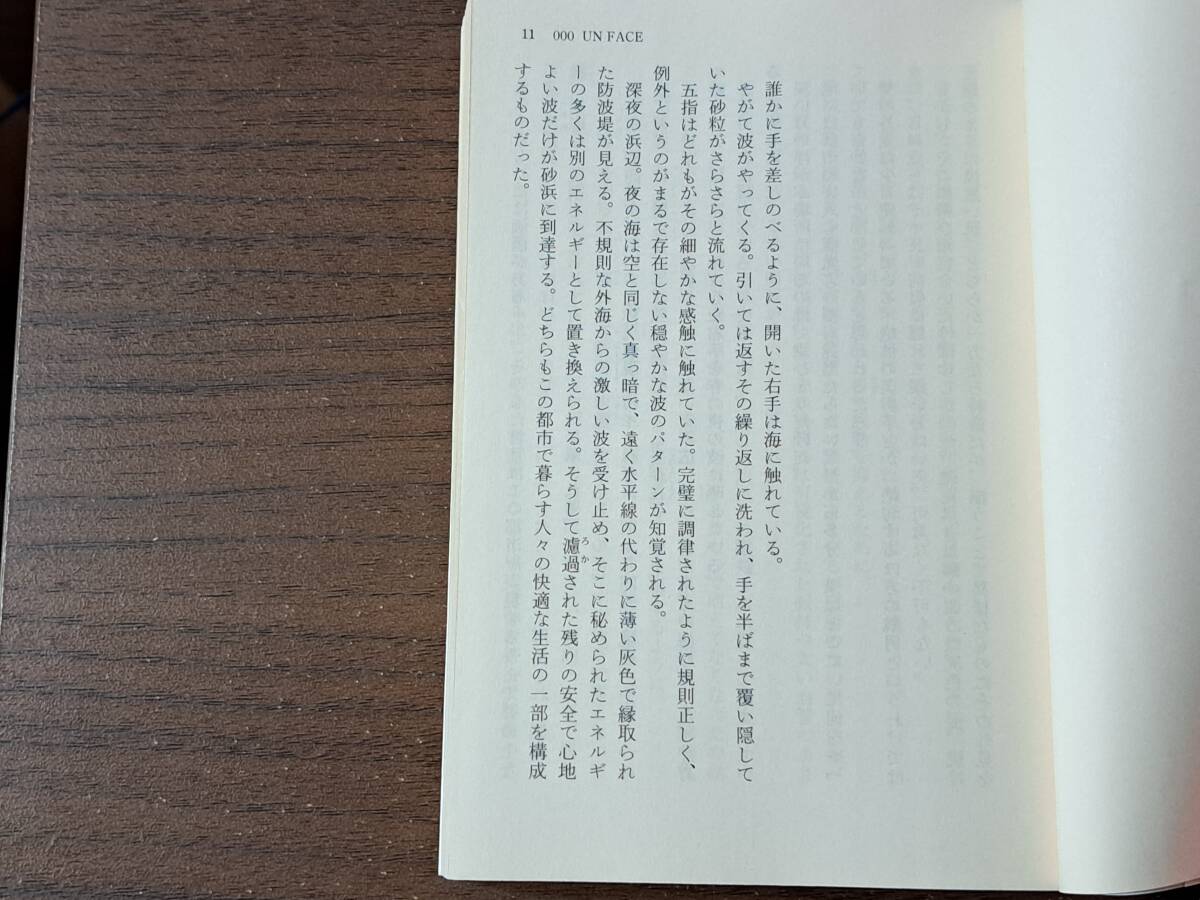 11 000 UN FACE
誰かに手を差しのべるように、開いた右手は海に触れている。
やがて波がやってくる。引いては返すその繰り返しに洗われ、手を半ばまで覆い隠して
いた砂粒がさらさらと流れていく。
五指はどれもがその細やかな感触に触れていた。完璧に調律されたように規則正しく、
例外というのがまるで存在しない穏やかな波のパターンが知覚される。
深夜の浜辺。夜の海は空と同じく真っ暗で、遠く水平線の代わりに薄い灰色で縁取られ
た防波堤が見える。不規則な外海からの激しい波を受け止め、そこに秘められたエネルギ
ーの多くは別のエネルギーとして置き換えられる。そうして濾過された残りの安全で心地
ろか
よい波だけが砂浜に到達する。どちらもこの都市で暮らす人々の快適な生活の一部を構成
するものだった。